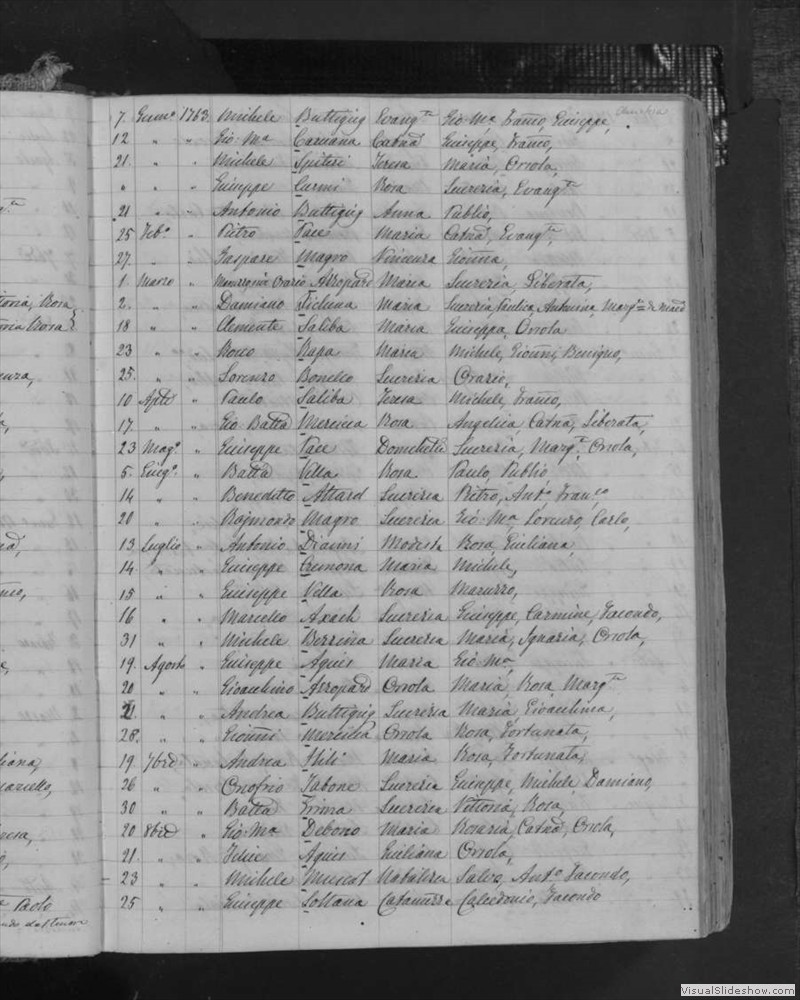 7. Genn.º 1763 Michele Buttigieg Evang.ta Gio: M.a, Franco, Giuseppe,
12 " " Gio: M.a Caruana Catnã Giuseppe, Franco,
21. " " Michele Spiteri Teresa Maria, Orsola,
" " " Giuseppe Curmi Rosa Lucrezia, Evang.ta
21 " " Antonio Buttigieg Anna Publio,
25 Feb.º " Pietro Pace Maria Catnã, Evang.ta,
27. " " Gaspare Magro Vincenza Gionna,
1. Marzo " Orazio Azzopard Maria Lucrezia, Liberata,
2. " " Damiano Sicluna Maria Lucrezia Paulica, Antonina, Marg.ta
18 " " Clemente Saliba Maria Giuseppa, Orsola
23 " " Rocco Rapa Maria Michele, Gionni, Benigno,
25. " " Lorenzo Bonello Lucrezia Orazio,
10 Aple " Paulo Saliba Teresa Michele, Franco,
17. " " Gio Batta Mercieca Rosa Angelica, Catnã, Liberata,
23 Mag.º " Giuseppe Pace Domchella Lucrezia, Marg.ta, Orsola,
5. Giug.º " Batta Vella Rosa Paulo, Publio,
14 " " Benedetto Attard Lucrezia Pietro, Ant.º Fran.co
20 " " Rajmondo Magro Lucrezia Gio: M.a, Lorenzo, Carlo,
13. Luglio " Antonio Diacini Modesta Rosa, Giuliana,
14 " " Giuseppe Cremona Maria Michele,
15 " " Giuseppe Vella Rosa Marozzo,
16 " " Marcello Axach Lucrezia Giuseppe, Carmine, Facondo,
31 " " Michele Bezzina Lucrezia Maria, Ignazia, Orsola,
19. Agosto " Giuseppe Agius Maria Gio: M.a,
20 " " Gioachino Azzopard Orsola Maria, Rosa, Marg.ta
21. " " Andrea Buttigieg Lucrezia Maria, Gioachina,
28. " " Gionni Mercieca Orsola Rosa, Fortunata,
19 7bre " Andrea Hili Maria Rosa, Fortunata,
26 " " Onofrio Tabone Lucrezia Giuseppe, Michele, Damiano,
30 " " Batta Grima Lucrezia Vittoria, Rosa,
20 8bre " Gio: M.a Debono Maria Rosaria, Catnã, Orsola,
21. " " Felice Agius Giuliana Orsola,
23 " " Michele Muscat Natalizia Salvo, Ant.º Facondo,
25 " " Giuseppe Soltana Catarinezza Calcedonio, Facondo
VisualSlideshow.com